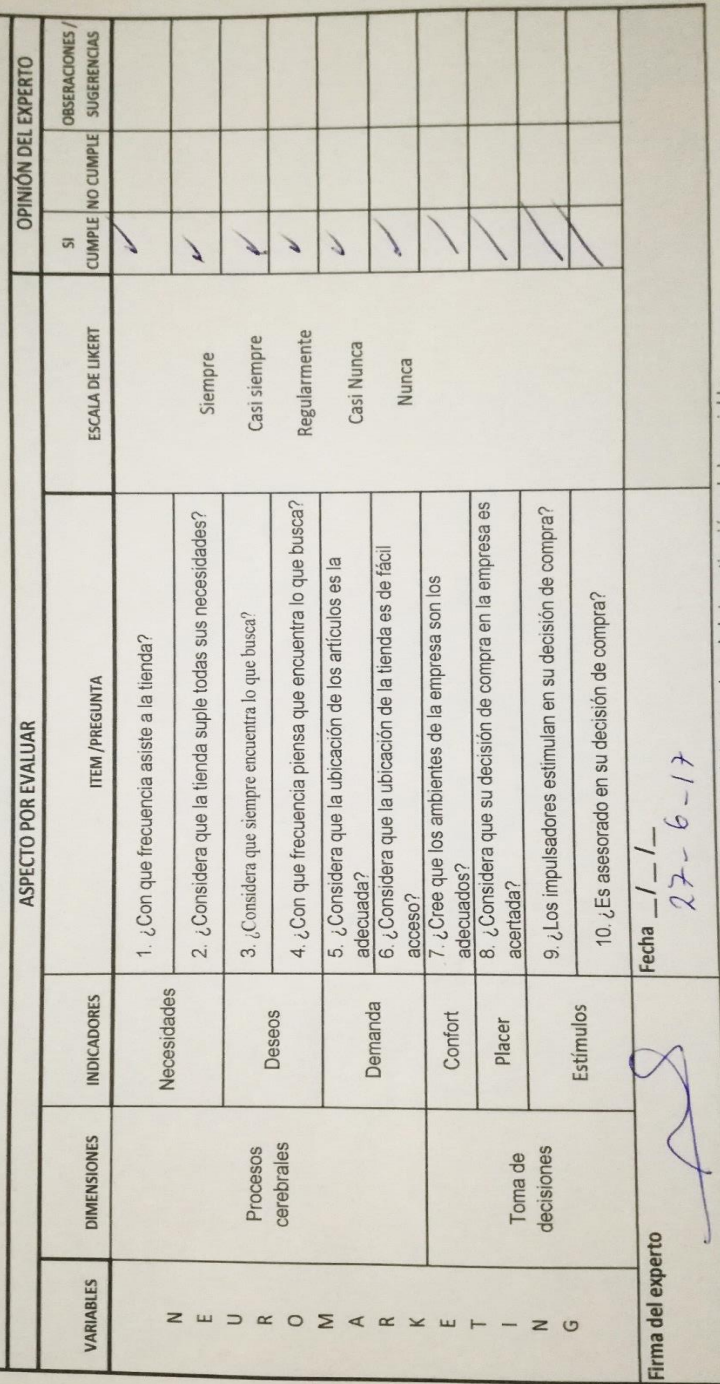 ASPECTO POR EVALUAR
OPINIÓN DEL EXPERTO
VARIABLES
DIMENSIONES
INDICADORES
ITEM /PREGUNTA
ESCALA DE LIKERT
SI
CUMPLE
NO CUMPLE
OBSERACIONES /
SUGERENCIAS
N
E
U
R
O
M
A
R
K
E
T
I
N
G
Procesos
cerebrales
Necesidades
1. ¿Con que frecuencia asiste a la tienda?
2. ¿Considera que la tienda suple todas sus necesidades?
Deseos
3. ¿Considera que siempre encuentra lo que busca?
4. ¿Con que frecuencia piensa que encuentra lo que busca?
Demanda
5. ¿Considera que la ubicación de los artículos es la
adecuada?
6. ¿Considera que la ubicación de la tienda es de fácil
acceso?
Toma de
decisiones
Confort
7. ¿Cree que los ambientes de la empresa son los
adecuados?
Placer
8. ¿Considera que su decisión de compra en la empresa es
acertada?
Estímulos
9. ¿Los impulsadores estimulan en su decisión de compra?
10. ¿Es asesorado en su decisión de compra?
Siempre
Casi siempre
Regularmente
Casi Nunca
Nunca
Firma del experto
Fecha _/_/_
27-6-17